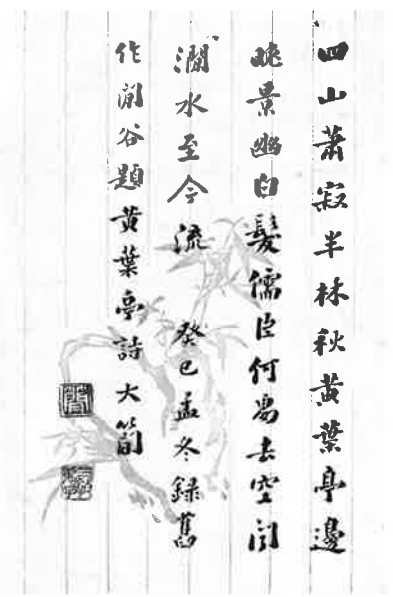 四山蕭寂半林秋黃葉亭邊
晚景幽白髮儒臣何爲去空聞
澗水至今流 癸巳孟冬錄舊
作澗谷題黃葉亭詩大簡